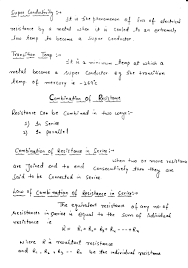 Super Conductivity :-
It is the phenomenon of loss of electrical
resistance by a metal when it is cooled to an extremely
low temp to become a super conductor.
Transition Temp :-
It is a minimum temp at which a
metal become a super conductor by the transition
temp of mercury is -269°C
Combination of Resistance
Resistance can be combined in two ways :-
1) In Series
2) In parallel
Combination of Resistance in Series :-
When two or more resistance
are joined end to end consecutively then they are
said to be connected in Series.
Law of Combination of Resistance in Series :-
The equivalent resistance of any no. of
resistance in series is equal to the sum of individual
resistance i.e
R = R₁ + R₂ + R₃
where R = resultant resistance
and R₁, R₂ be the individual resistance